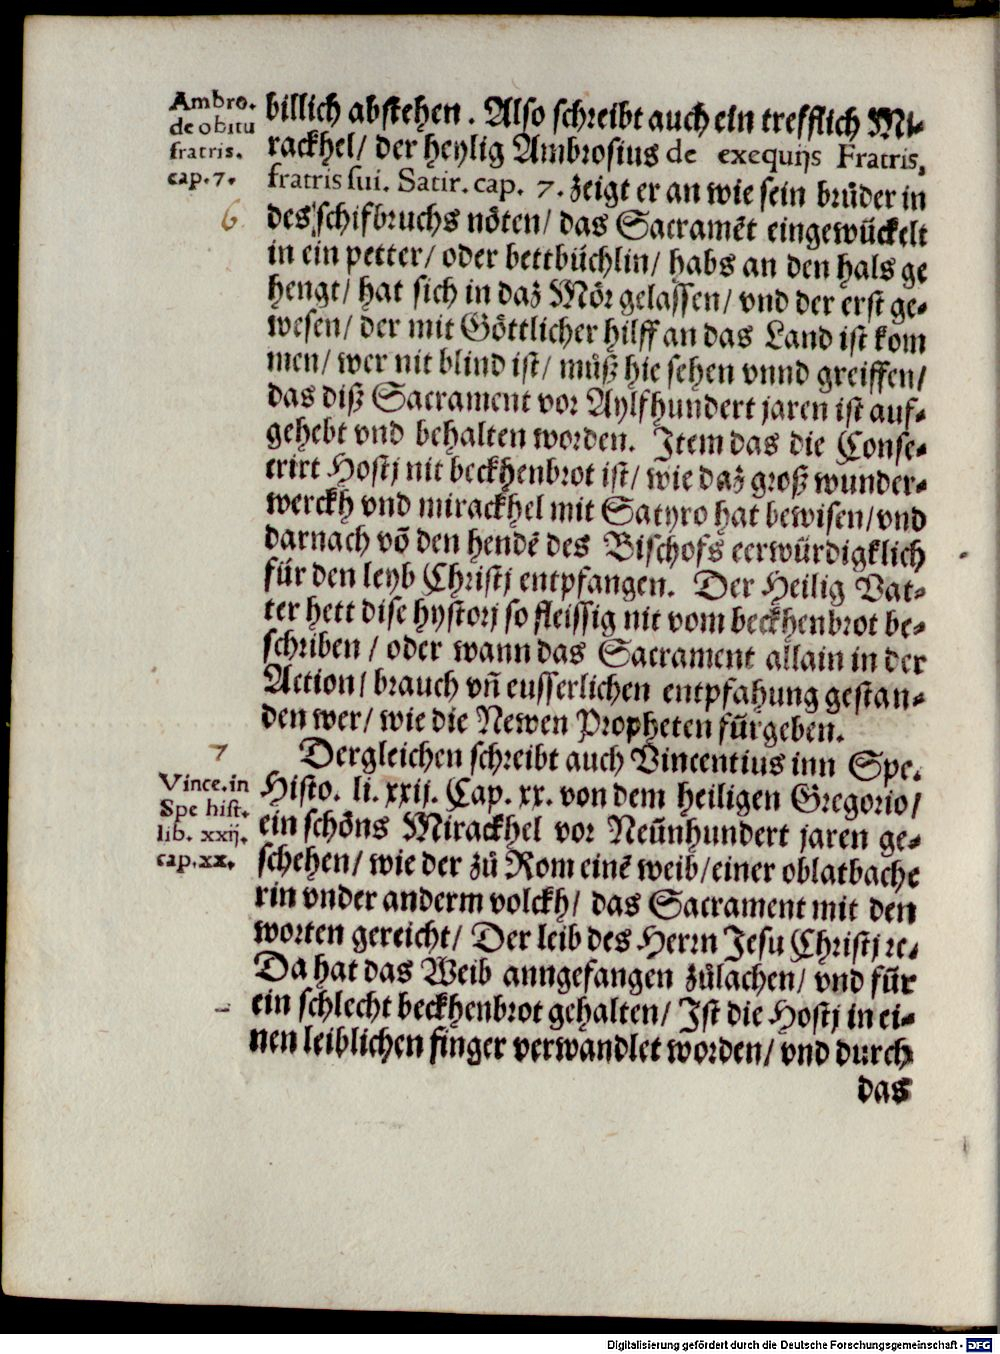 Ambro.
de obitu
fratris.
cap. 7.
6
billich abstehen. Also schreibt auch ein trefflich Mi-
rackhel/ der heylig Ambrosius de exequijs Fratris,
fratris sui. Satir. cap. 7. zeigt er an wie sein brůder in
des schifbruchs nöten/ das Sacramẽt eingewückelt
in ein petter/ oder bettbüchlin/ habs an den hals ge
hengt/ hat sich in daz Mör gelassen/ vnd der erst ge-
wesen/ der mit Göttlicher hilff an das Land ist kom
men/ wer nit blind ist/ můß hie sehen vnnd greiffen/
das diß Sacrament vor Aylfhundert jaren ist auf-
gehebt vnd behalten worden. Item das die Conse-
crirt Hostj nit beckhenbrot ist/ wie daz groß wunder-
werckh vnd mirackhel mit Satyro hat bewisen/ vnd
darnach võ den hendẽ des Bischofs eerwürdigklich
für den leyb Christj entpfangen. Der Heilig Vat-
ter hett dise hystorj so fleissig nit vom beckhenbrot be-
schriben / oder wann das Sacrament allain in der
Action/ brauch vñ eusserlichen entpfahung gestan-
den wer/ wie die Newen Propheten fürgeben.
7
Vince. in
Spe hist.
lib. xxij.
cap. xx.
Dergleichen schreibt auch Vincentius inn Spe.
Histo. li. xxij. Cap. xx. von dem heiligen Gregorio/
ein schöns Mirackhel vor Neünhundert jaren ge-
schehen/ wie der zů Rom einẽ weib/ einer oblatbache
rin vnder anderm volckh/ das Sacrament mit den
worten gereicht/ Der leib des Herrn Jesu Christj ꝛc.
Da hat das Weib anngefangen zůlachen/ vnd für
ein schlecht beckhenbrot gehalten/ Ist die Hostj in ei-
nen leiblichen finger verwandlet worden/ vnd durch
das
Digitalisierung gefördert durch die Deutsche Forschungsgemeinschaft - DFG